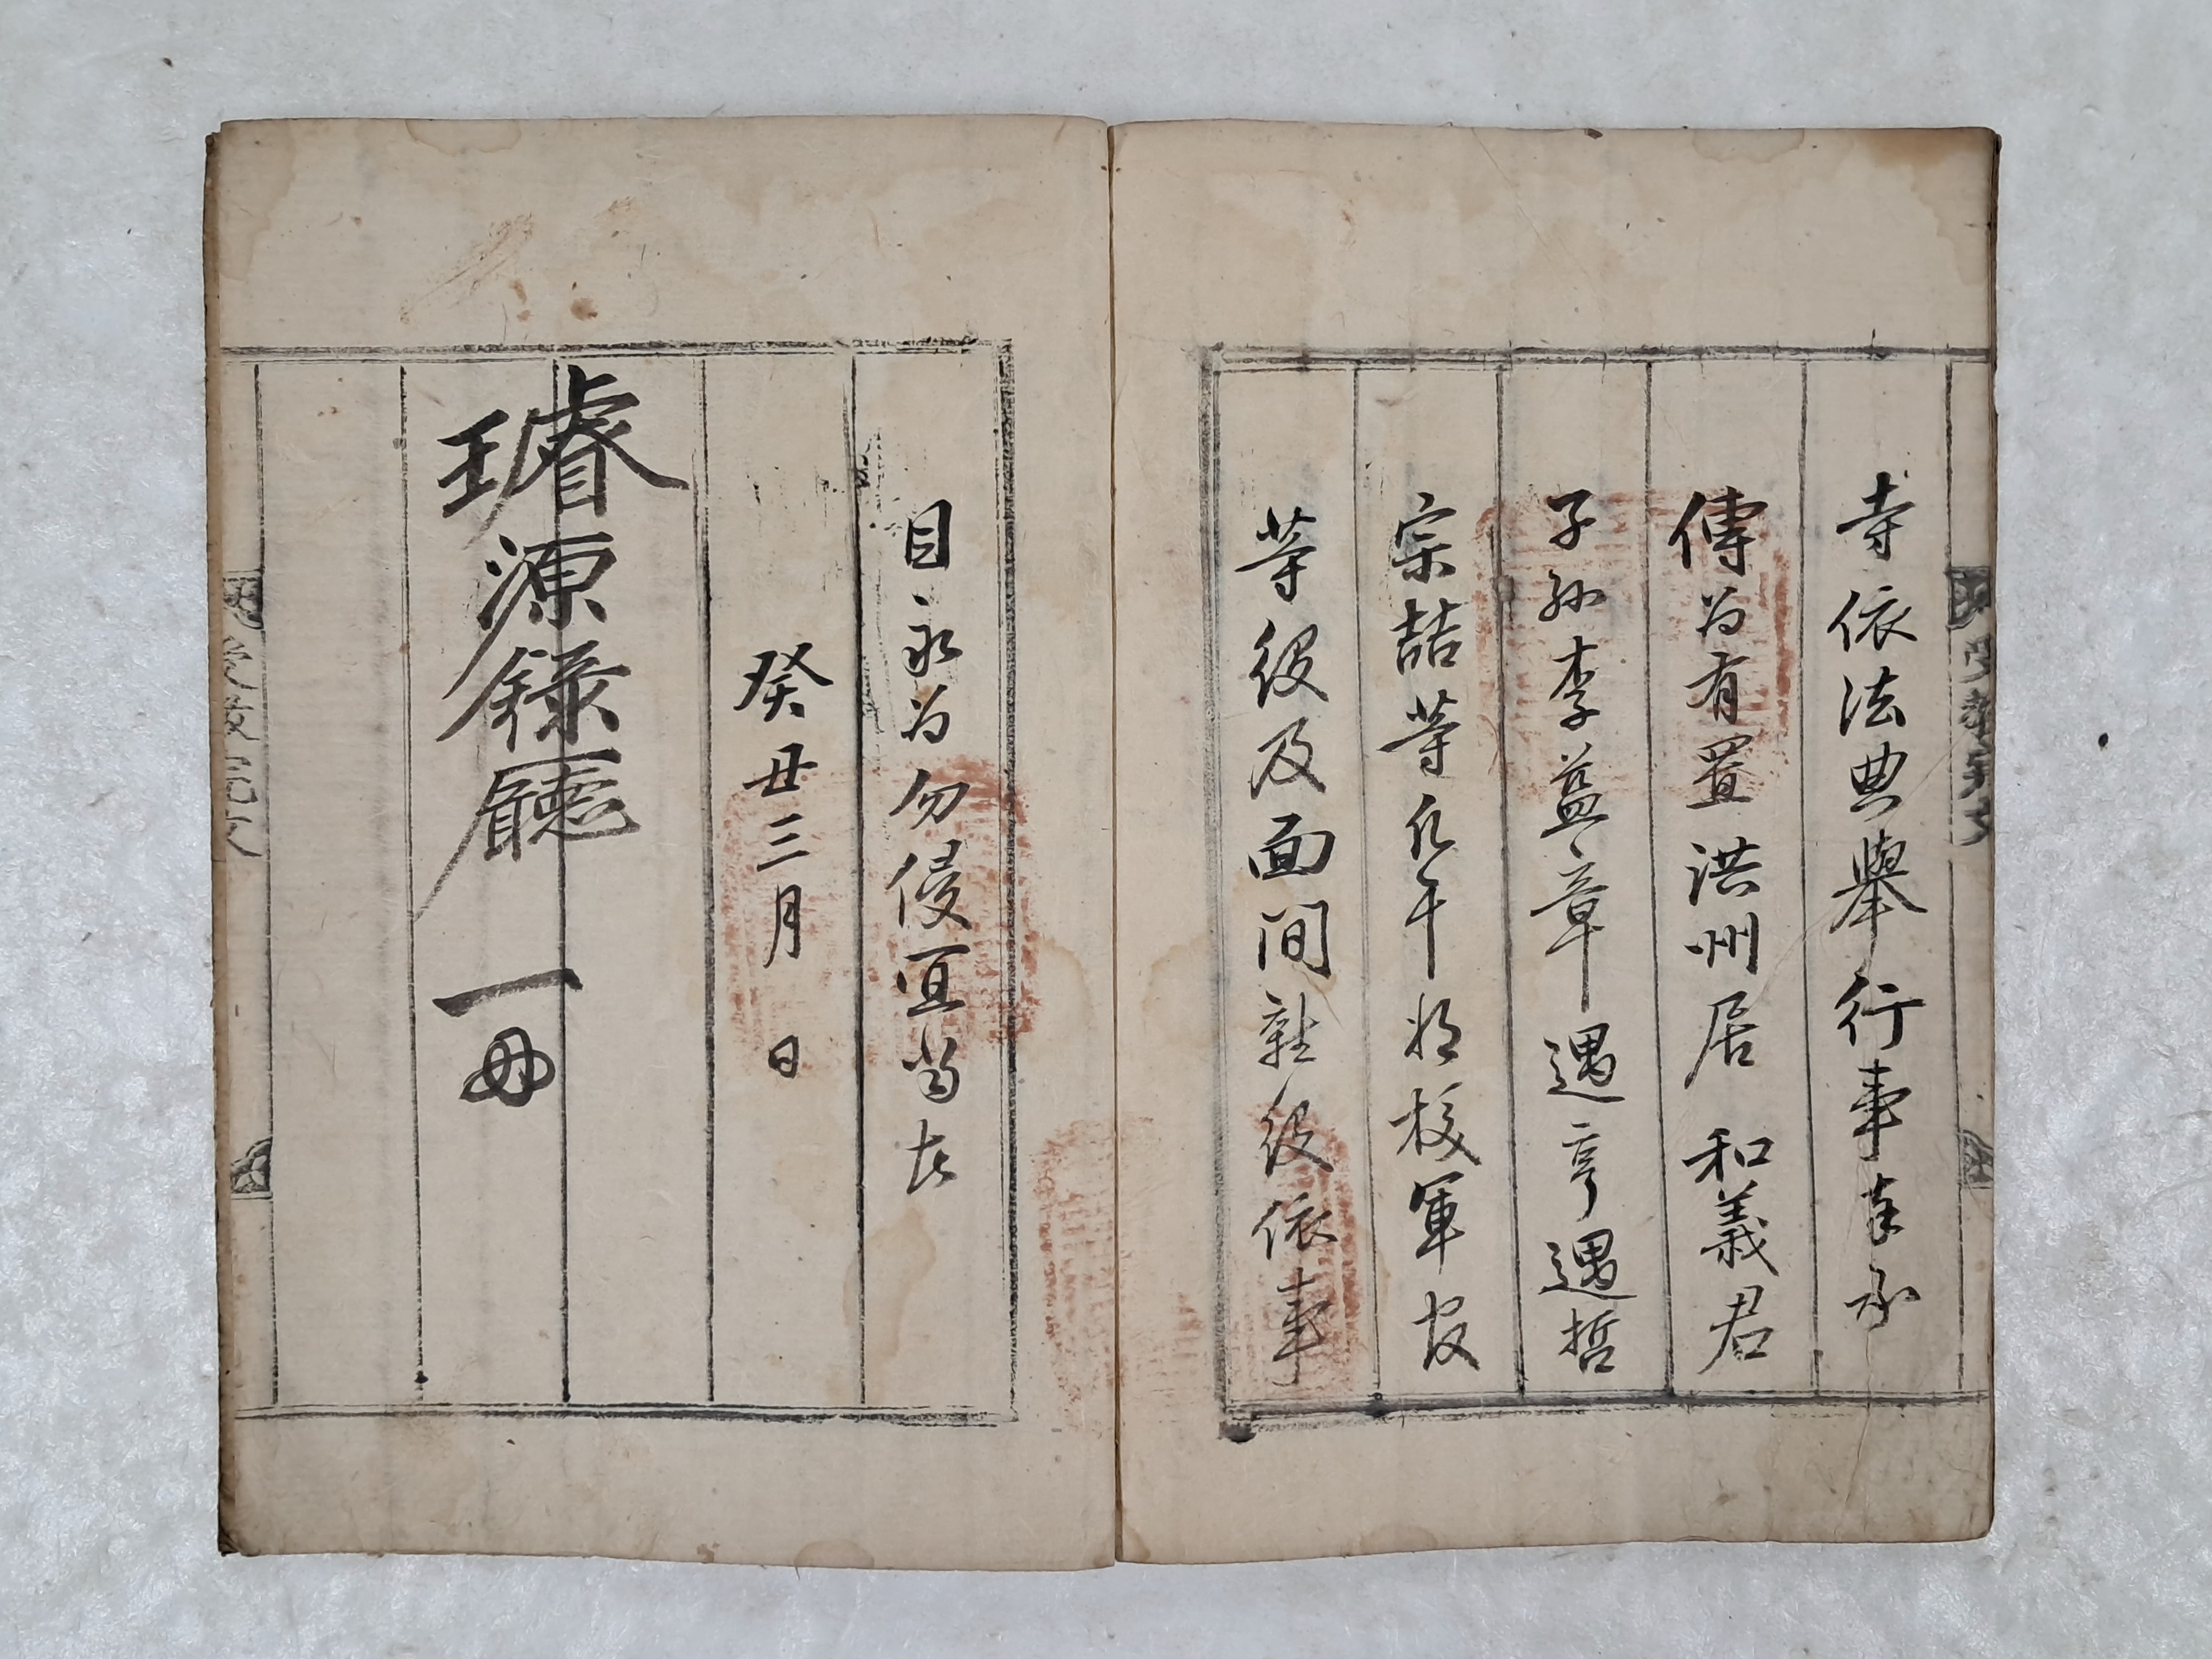 寺依法典舉行事奉承
傳為有置洪州居和義君
子孫李益章遇亨遇哲
宗喆等 軍校軍官
等役及面間雜役依事
目永為勿侵宜當者
癸丑三月 日
璿源錄廳 一冊